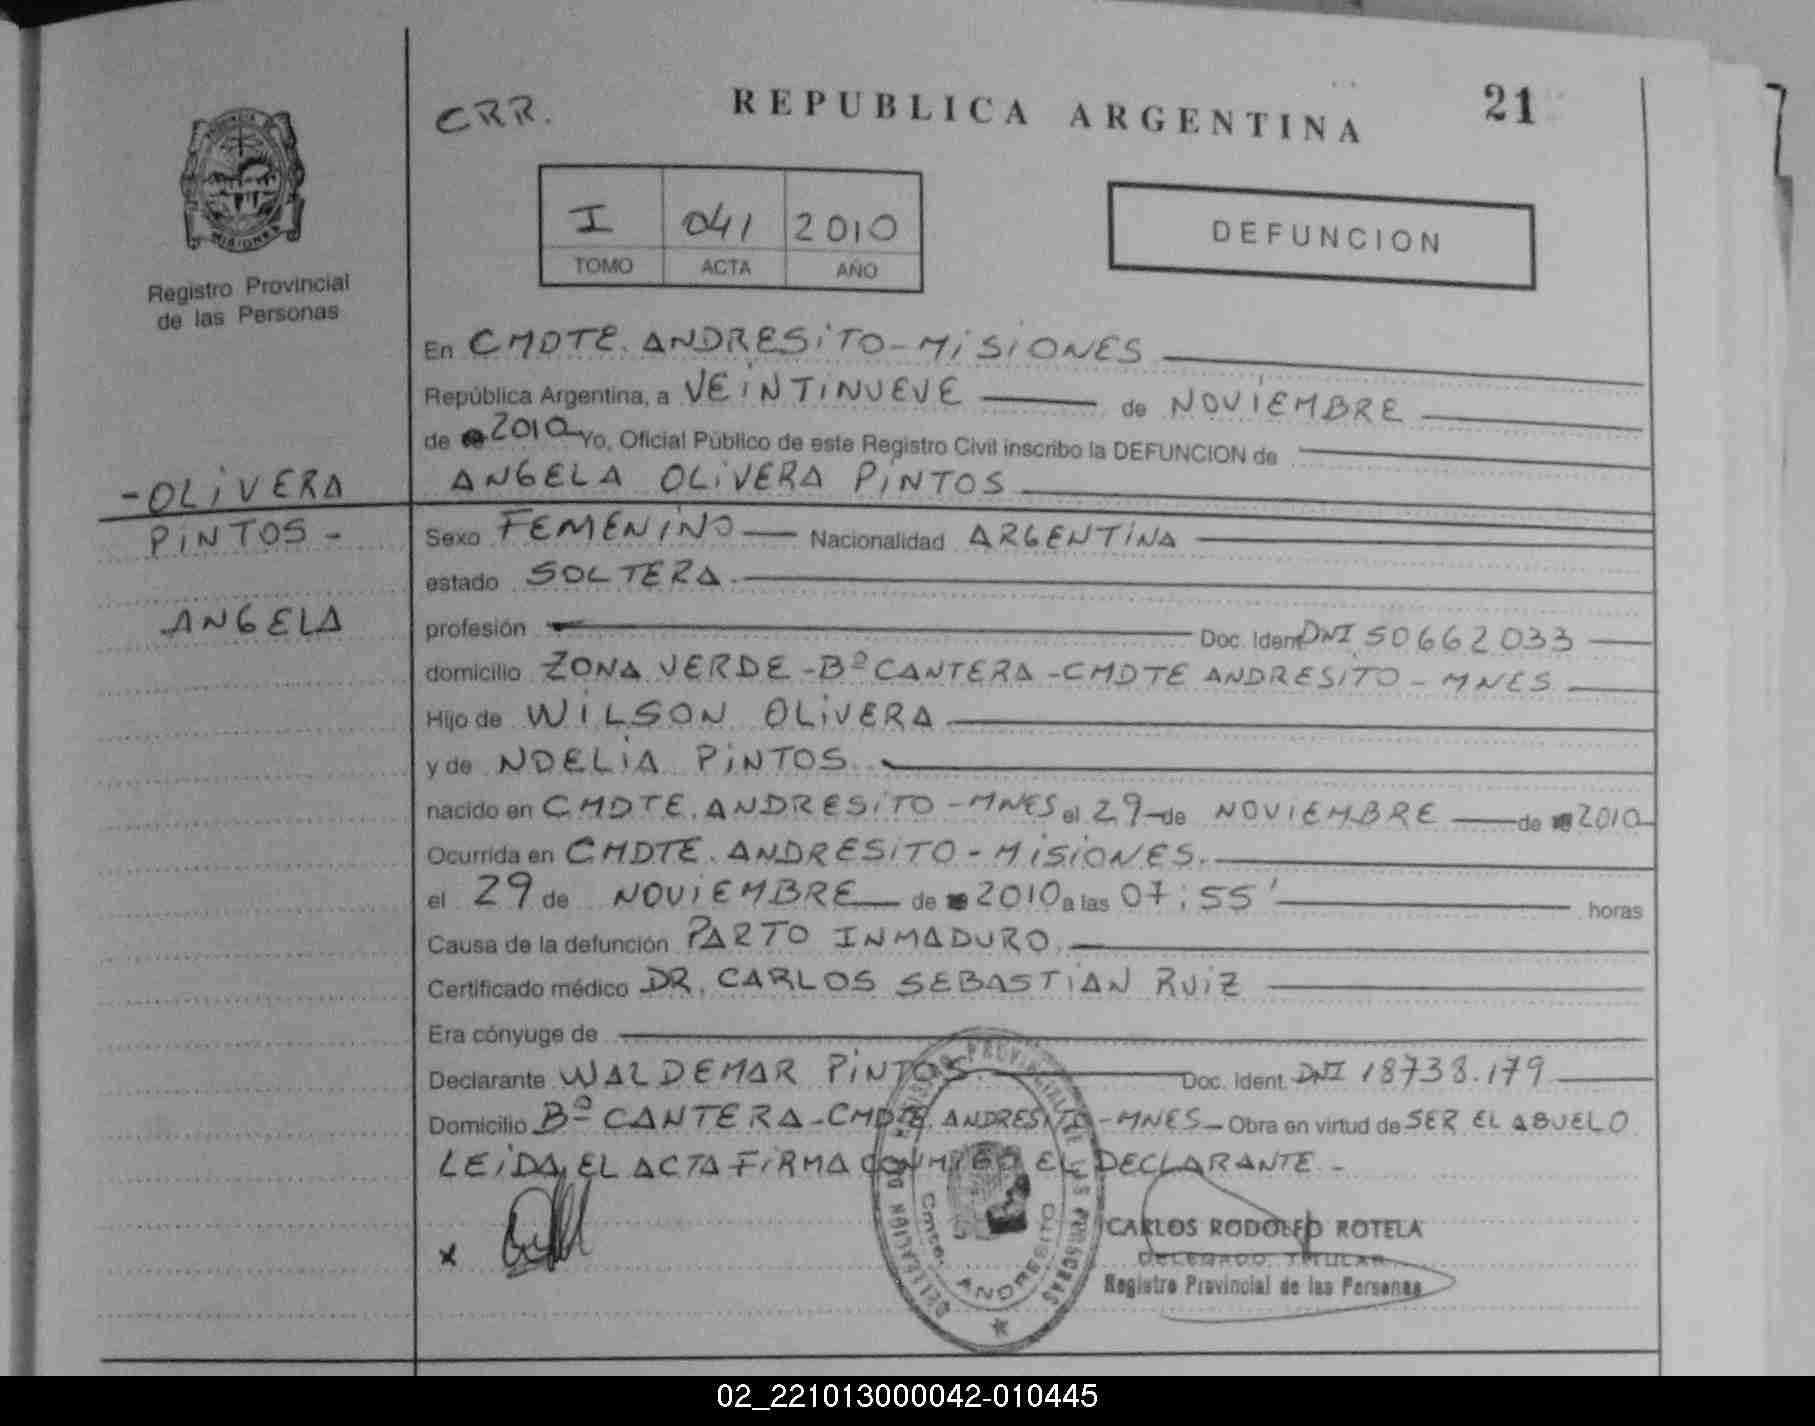 CRR.
REPUBLICA ARGENTINA
21
I 041 2010
TOMO ACTA AÑO
DEFUNCION
PROVINCIA DE
MISIONES
Registro Provincial
de las Personas
En CMDTE. ANDRESITO - MISIONES
República Argentina, a VEINTINUEVE de NOVIEMBRE
de 2010 Yo, Oficial Público de este Registro Civil inscribo la DEFUNCION de
ANGELA OLIVERA PINTOS
- OLIVERA
PINTOS -
ANGELA
Sexo FEMENINO Nacionalidad ARGENTINA
estado SOLTERA.
profesión Doc. Ident DNI 50662033
domicilio ZONA VERDE - Bº CANTERA - CMDTE ANDRESITO - MNES
Hijo de WILSON OLIVERA
y de NOELIA PINTOS
nacido en CMDTE. ANDRESITO - MNES el 29 de NOVIEMBRE de 2010
Ocurrida en CMDTE. ANDRESITO - MISIONES.
el 29 de NOVIEMBRE de 2010 a las 07:55' horas
Causa de la defunción PARTO INMADURO.
Certificado médico DR. CARLOS SEBASTIAN RUIZ
Era cónyuge de
Declarante WALDEMAR PINTOS. Doc. Ident. DNI 18738.179
Domicilio Bº CANTERA - CMDTE. ANDRESITO - MNES - Obra en virtud de SER EL ABUELO
LEIDA EL ACTA FIRMA CONMIGO EL DECLARANTE. -
x
REGISTRO PROVINCIAL DE LAS PERSONAS
DELEGACION
Cmte. ANDRESITO
CARLOS RODOLFO ROTELA
DELEGADO TITULAR
Registro Provincial de las Personas
02_221013000042-010445